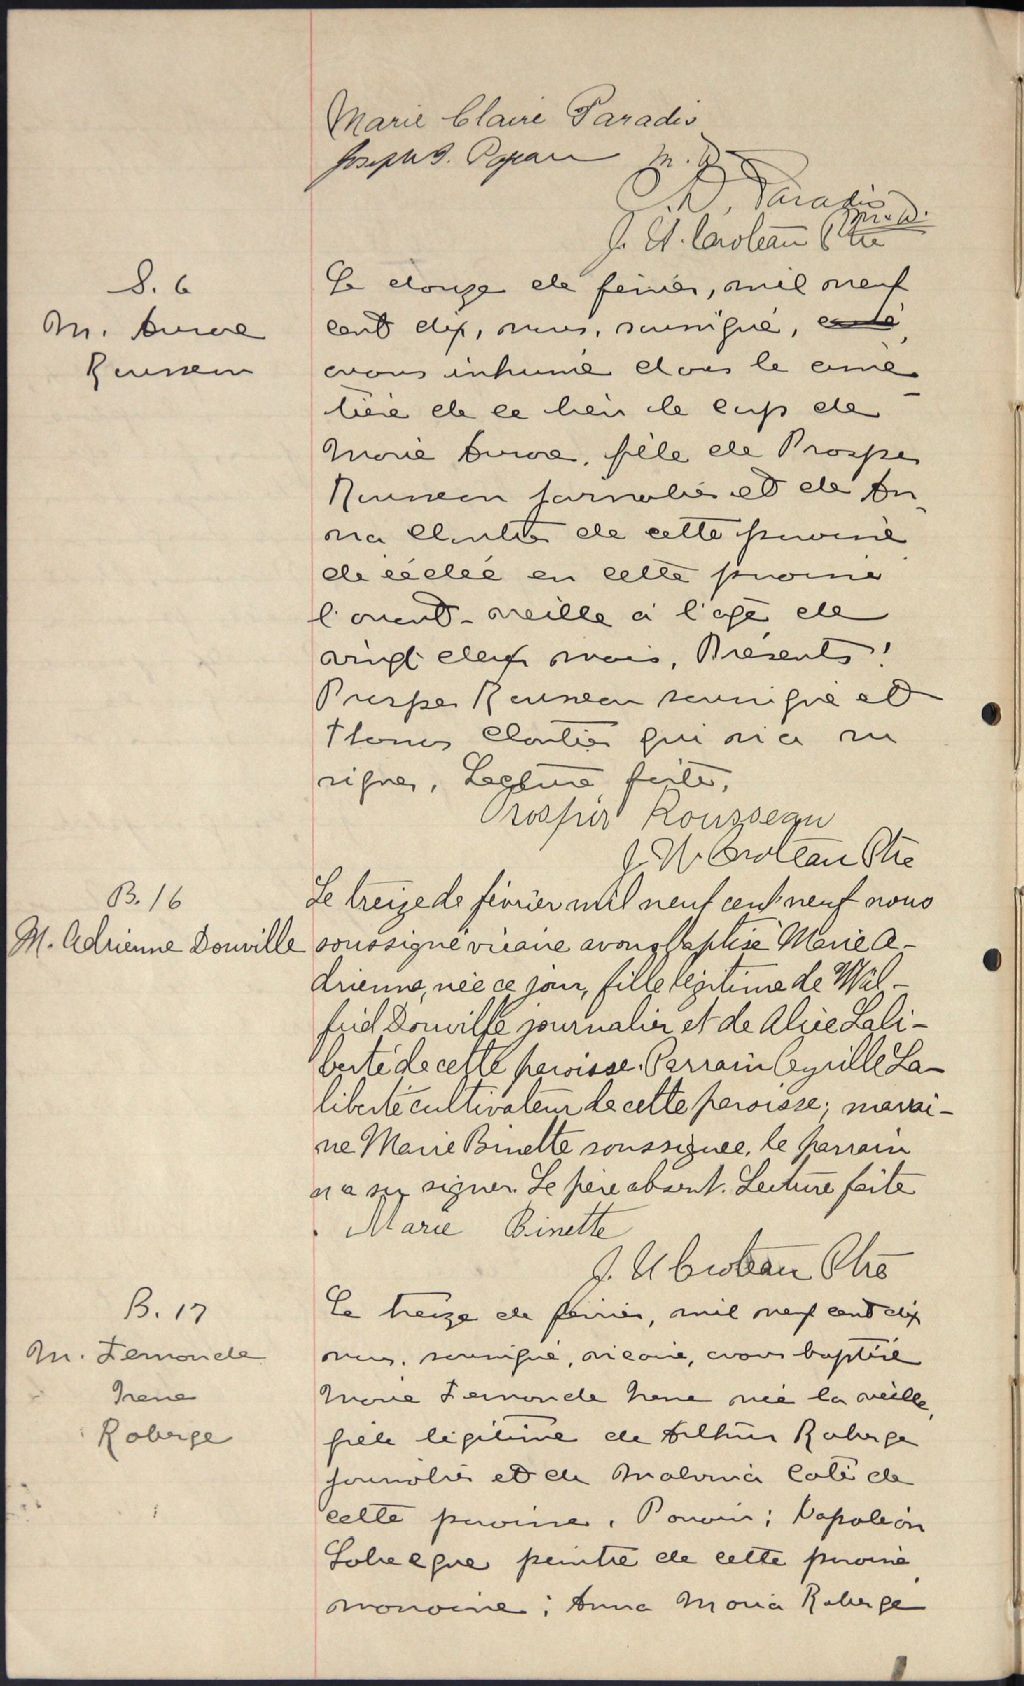 Marie Claire Paradis
Joseph Papau M. D.
C. D. Paradis M. D.
J. U. Croteau Ptre
S. 6
M. Aurore
Rousseau
Le douze de février, mil neuf
cent dix, nous, soussigné, curé,
avons inhumé dans le cime-
tière de ce lieu le corps de
Marie Aurore, fille de Prosper
Rousseau journalier et de An-
na Cloutier de cette paroisse
décédée en cette paroisse
l'avant-veille à l'âge de
vingt deux mois. Présents:
Prosper Rousseau soussigné et
Thomas Cloutier qui n'a su
signer. Lecture faite.
Prospér Rousseau
J. U. Croteau Ptre
B. 16
M. Adrienne Douville
Le treize de février mil neuf cent neuf nous
soussigné vicaire avons baptisé Marie A-
drienne, née ce jour, fille légitime de Wil-
frid Douville journalier et de Alice Lali-
berté de cette paroisse. Parrain Cyrille La-
liberté cultivateur de cette paroisse; marrai-
ne Marie Binette soussignée, le parrain
n'a su signer. Le père absent. Lecture faite
Marie Binette
J. U. Croteau Ptre
B. 17
M. Fernande
Irene
Roberge
Le treize de février, mil neuf cent dix
nous, soussigné, vicaire, avons baptisé
Marie Fernande Irene née la veille,
fille légitime de Arthur Roberge
journalier et de Malvina Coté de
cette paroisse. Parrain; Napoléon
peintre de cette paroisse,
marraine; Anna Maria Roberge